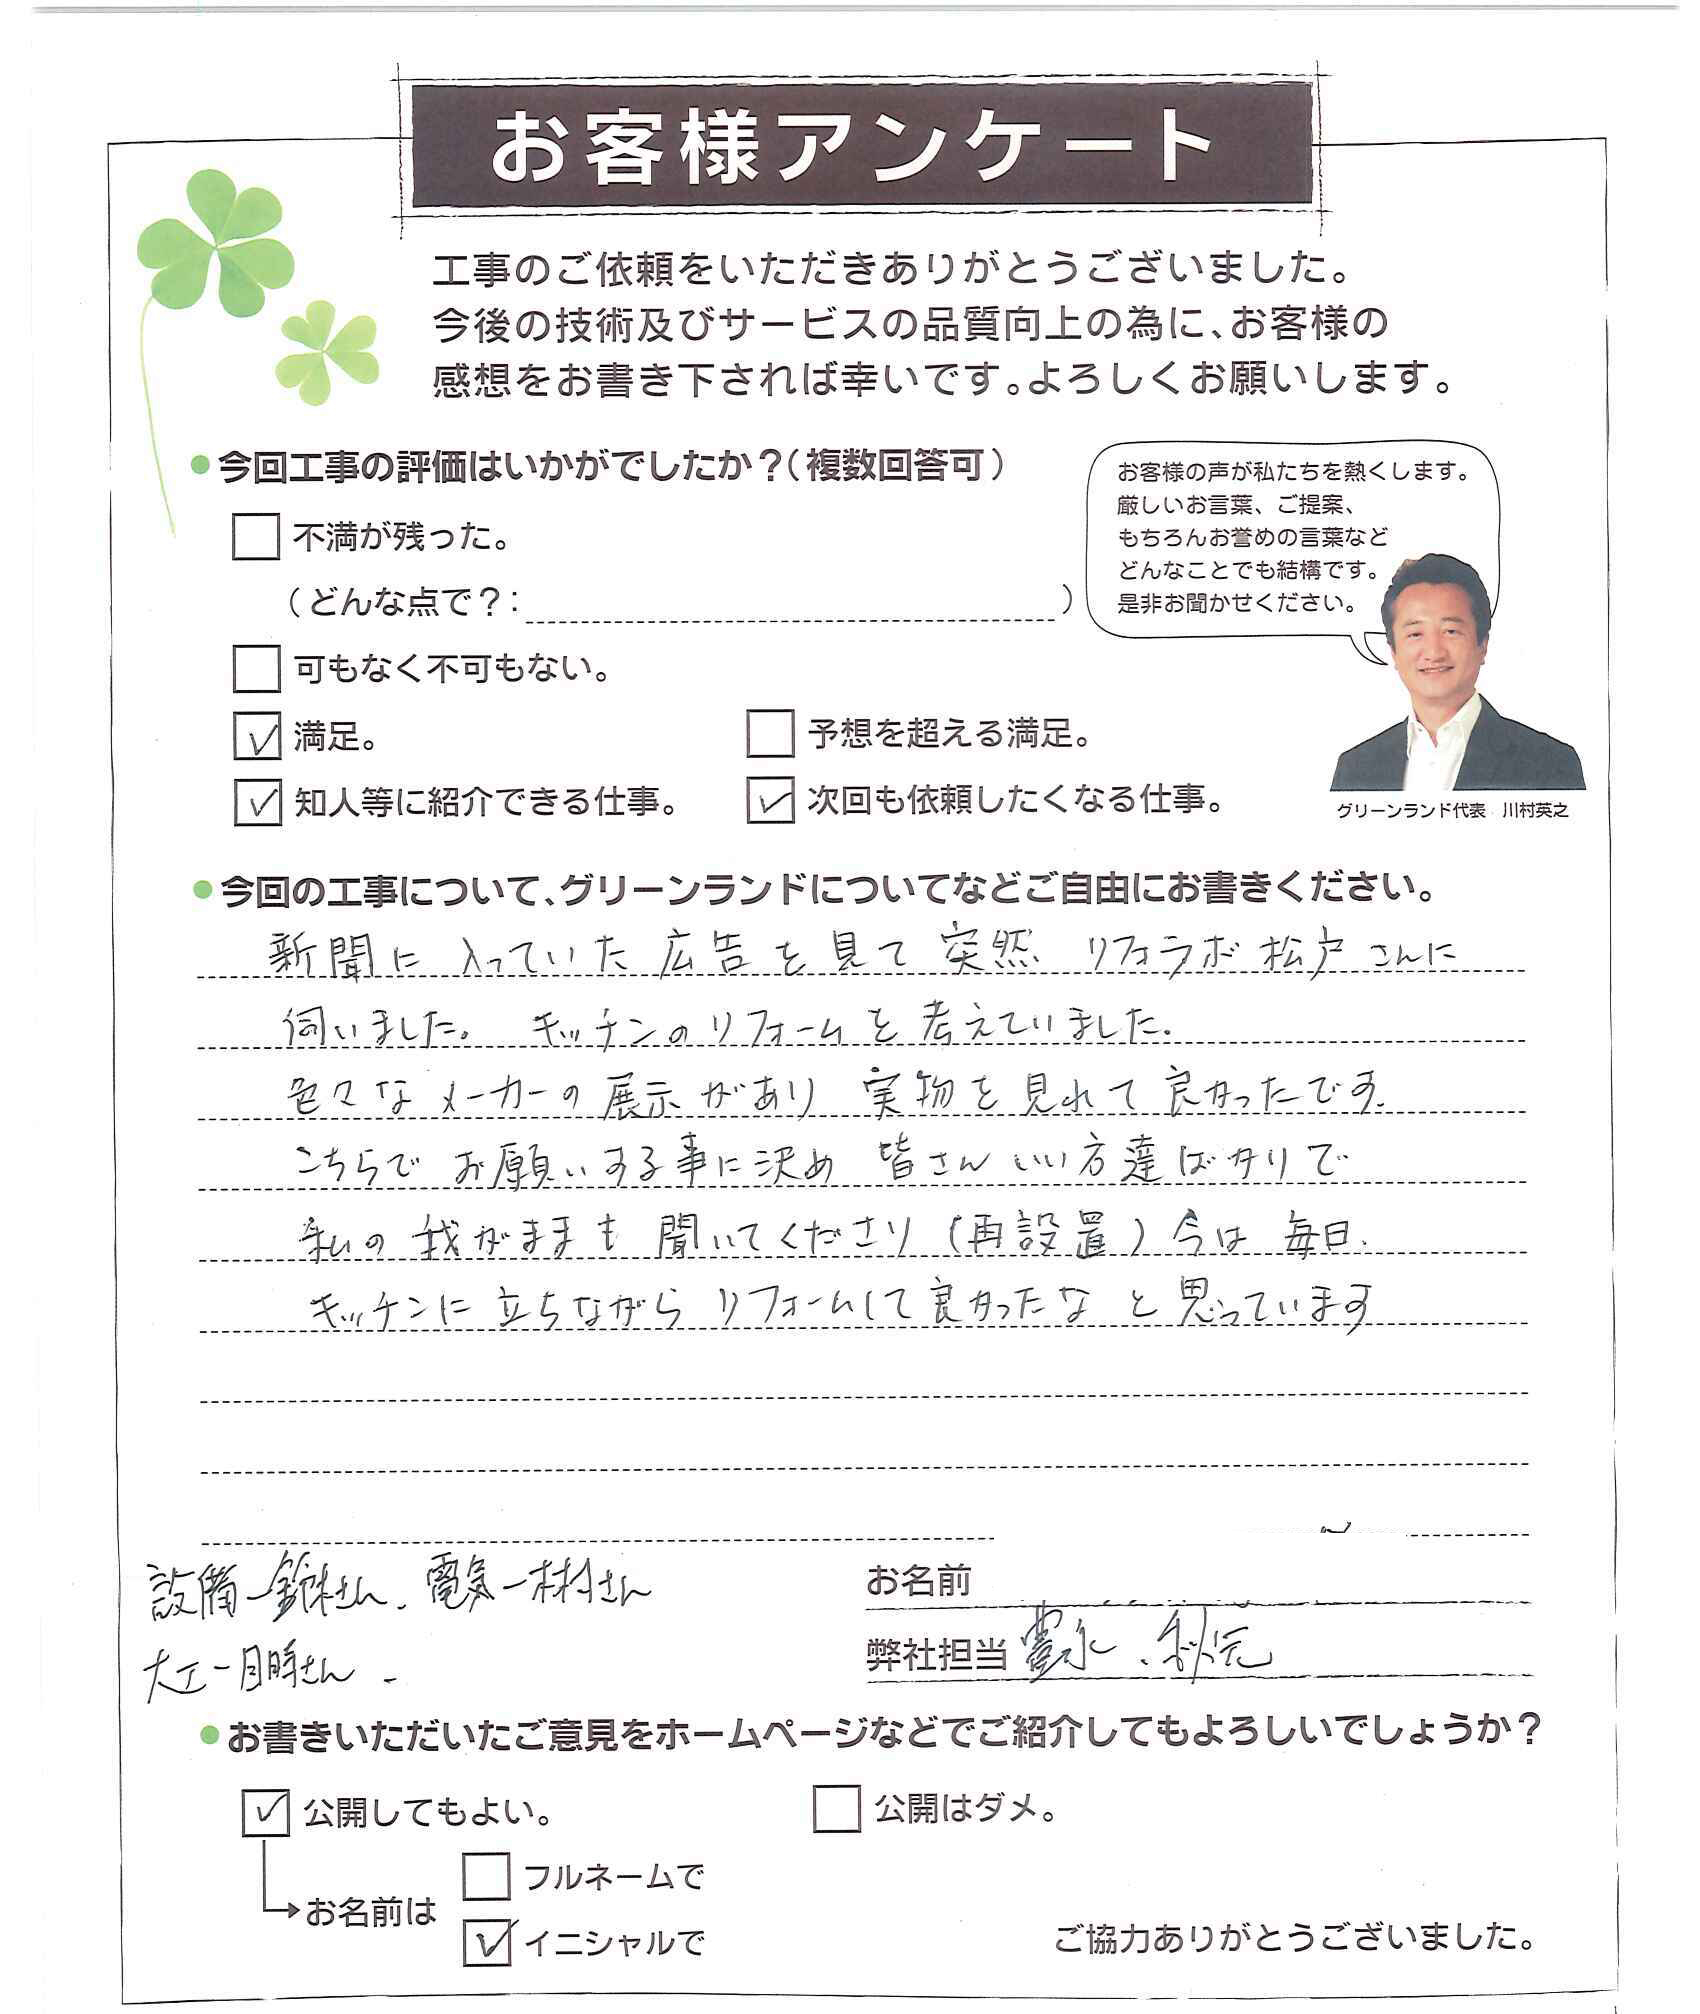 お客様アンケート
工事のご依頼をいただきありがとうございました。
今後の技術及びサービスの品質向上の為に、お客様の
感想をお書き下されば幸いです。よろしくお願いします。
●今回工事の評価はいかがでしたか？(複数回答可)
不満が残った。
(どんな点で？: )
可もなく不可もない。
満足。
予想を超える満足。
知人等に紹介できる仕事。
次回も依頼したくなる仕事。
お客様の声が私たちを熱くします。
厳しいお言葉、ご提案、
もちろんお誉めの言葉など
どんなことでも結構です。
是非お聞かせください。
グリーンランド代表 川村英之
●今回の工事について、グリーンランドについてなどご自由にお書きください。
新聞に入っていた広告を見て突然 リフォラボ松戸さんに
伺いました。 キッチンのリフォームを考えていました。
色々なメーカーの展示があり 実物を見れて良かったです。
こちらでお願いする事に決め 皆さんいい方達ばかりで
私の我がままも聞いてくださり(再設置)今は毎日、
キッチンに立ちながらリフォームして良かったなと思っています
設備ー鈴木さん、電気ー木村さん
大工ー目時さん
お名前
弊社担当 豊永、秋元
●お書きいただいたご意見をホームページなどでご紹介してもよろしいでしょうか？
公開してもよい。
公開はダメ。
お名前は
フルネームで
イニシャルで
ご協力ありがとうございました。